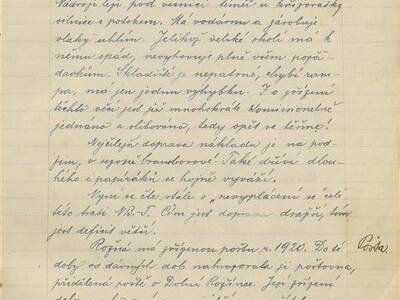 Nádraží leží pod vesnicí téměř u křižovatky
silnice s potokem. Má vodárnu a zásobuje
vlaky uhlím. Jelikož veliké okolí má k
němu spád, nevyhovuje plně všem poža-
davkům. Skladiště je nepatrné, chybí ram-
pa, má jen jednu výhybku. I o zřízení
těchto věcí jest již mnohokráte komisionelně
jednáno a slibováno, tedy opět se těšme!
Nejčilejší doprava nákladu je na pod-
zim, v vývozu bramborové! Také dříví dlou-
hého i papíráků se hojně vyváží.
Nyní se čte stále o „nevyplácení se“ celé
této trati NB-T. Čím jest doprava dražší, tím
jest deficit větší.
Rožná má zřízenou poštu r. 1920. Do té Pošta.
doby od dávných dob nahrazovala ji poštovna,
přidělená poště v Dolní Rožínce. Její zřízení